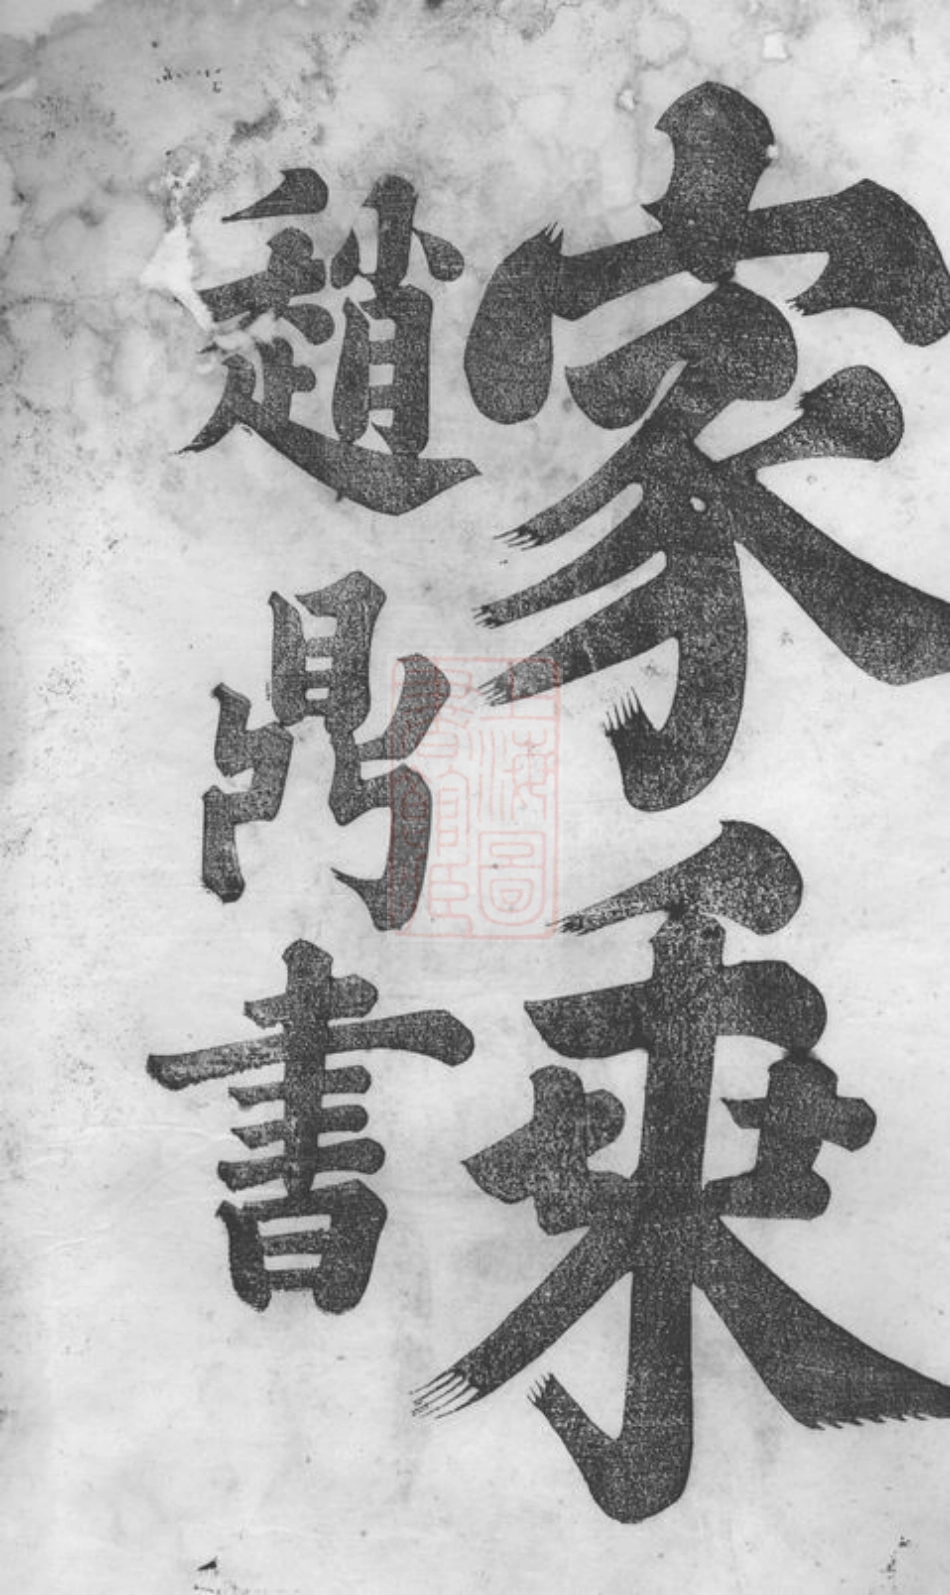 家乘
趙鼎書
上海圖書館藏